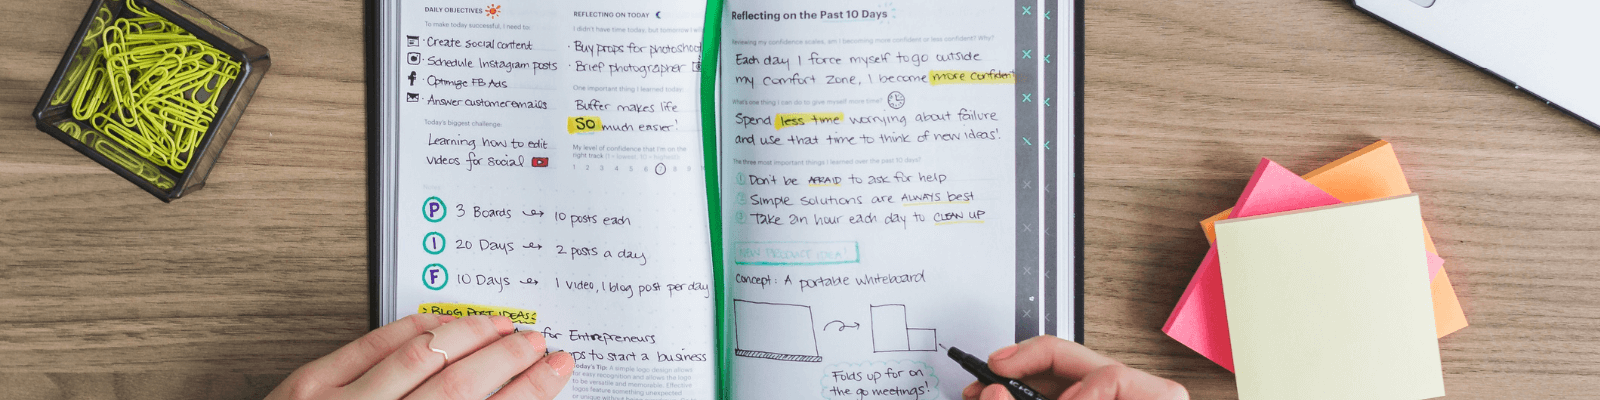 DAILY OBJECTIVES
To make today successful, I need to:
Create social content
Schedule Instagram posts
Optimize FB Ads
Answer customer emails
Today's biggest challenge:
Learning how to edit
videos for social
REFLECTING ON TODAY
I didn't have time today, but tomorrow I will
· Buy props for photoshoot
· Brief photographer
One important thing I learned today:
Buffer makes life
SO much easier!
My level of confidence that I'm on the
right track (1 = lowest, 10 = highest):
1 2 3 4 5 6 7 8 9
Notes:
P 3 Boards → 10 posts each
I 20 Days → 2 posts a day
F 10 Days → 1 video, 1 blog post per day
BLOG POST IDEAS
for Entrepreneurs
to start a business
Today's Tip: A simple logo design allows
for easy recognition and allows the logo
to be versatile and memorable. Effective
logos feature something unexpected
or unique without being
Reflecting on the Past 10 Days
Reviewing my confidence scales, am I becoming more confident or less confident? Why?
Each day I force myself to go outside
my comfort zone, I become more confident
What's one thing I can do to give myself more time?
Spend less time worrying about failure
and use that time to think of new ideas!
The three most important things I learned over the past 10 days?
① Don't be AFRAID to ask for help
② Simple solutions are ALWAYS best
③ Take an hour each day to CLEAN UP
NEW PRODUCT IDEA!
Concept: A portable whiteboard
Folds up for on
the go meetings!